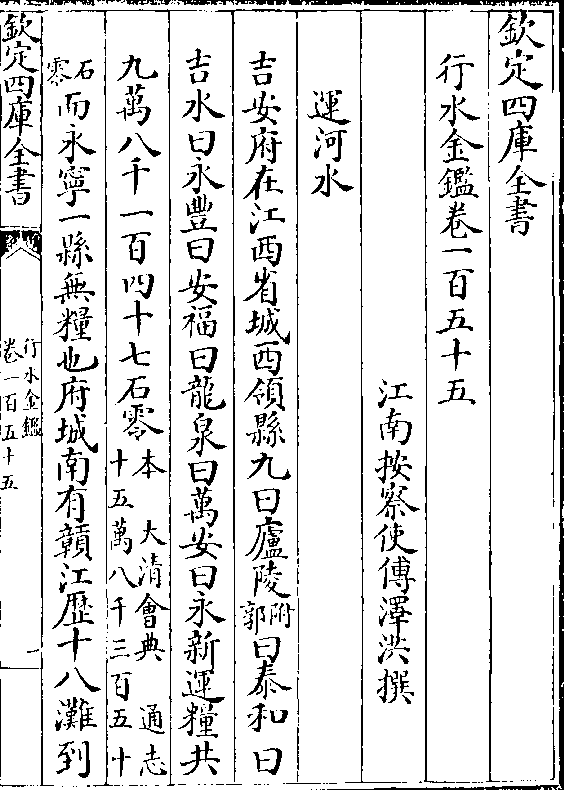 欽定四庫全書
行水金鑑卷一百五十五
江南按察使傅澤洪撰
運河水
吉安府在江西省城西領縣九曰廬陵附郭曰泰和曰
吉水曰永豐曰安福曰龍泉曰萬安曰永新運糧共
九萬八千一百四十七石零本 大清會典 通志十五萬八千三百五十
石零而永寧一縣無糧也府城南有贛江歷十八灘到
欽定四庫全書
行水金鑑
卷一百五十五
一